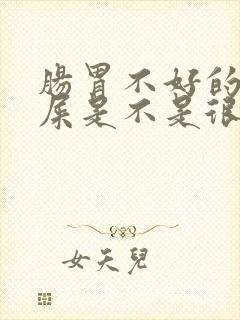 腸胃不好的
屎是不是很
女天兒